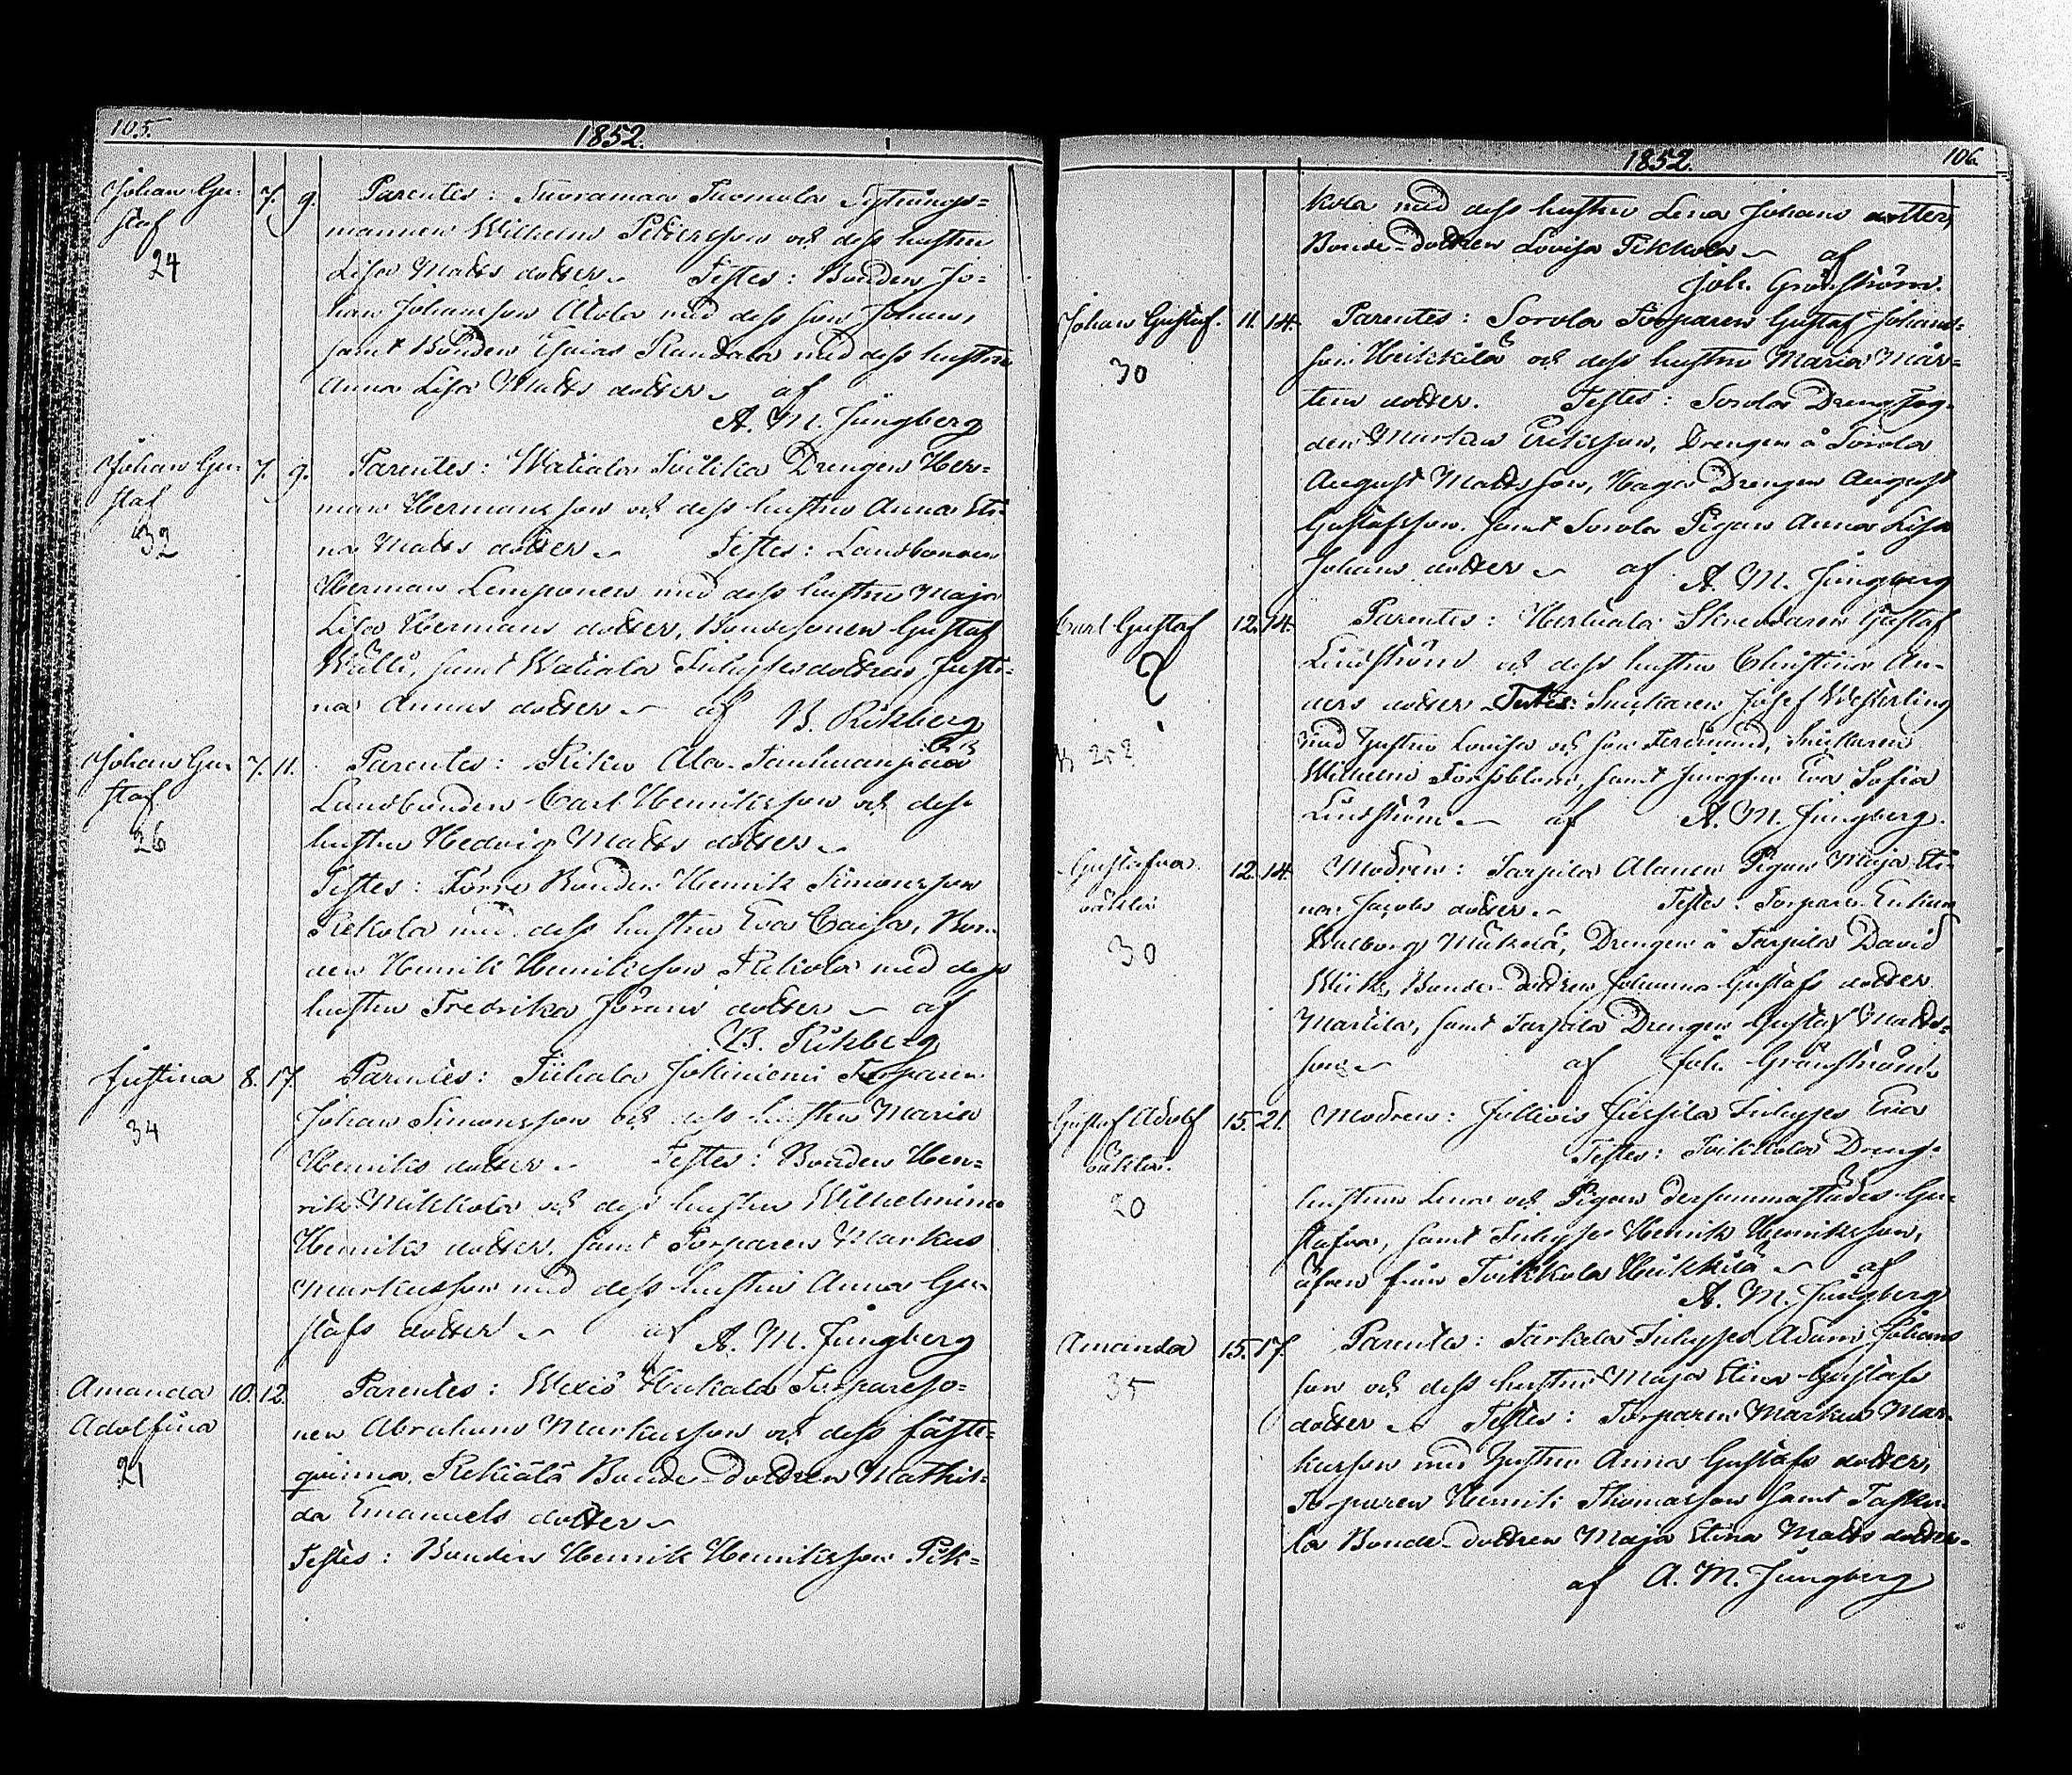 105.
1852.
Johan Gu- 7. 9. Parentes: Suoramaa Tuomola
staf mannen Wilhelm Pettersson och dess hustru
24 Lisa Matts dotter. Testes: Bonden Jo-
han Johansson Alola med dess son Johan,
samt Bonden Esaias Randala med dess hustru
Anna Lisa Matts dotter af
A. M. Ljungberg
Johan Gu- 7. 9. Parentes: Watiala Drengen Her-
staf man Hermansson och dess hustru Anna Sti-
32 na Matts dotter Testes: Landbonden
Herman Lemponen med dess hustru Maja
Lisa Hermans dotter, Bondesonen Gustaf
Wälli, samt Watiala Inhysesdottren Justi-
na Annas dotter af
Johan Gu- 7. 11. Parentes: Riku Ala-
staf Landbonden Carl Henriksson och dess
26 hustru Hedvig Matts dotter
Testes: Förre Bonden Henrik Simonsson
Rekola med dess hustru Eva Caisa, Bon-
den Henrik Henriksson Rekola med dess
hustru Fredrika Jörans dotter af
Justina 8. 17. Parentes: Tiihala Torparen
34 Johan Simonsson och dess hustru Maria
Henriks dotter Testes: Bonden Hen-
rik Mikkola och dess hustru Wilhelmina
Henriks dotter, samt Torparen Markus
Markusson med dess hustru Anna Gu-
stafs dotter af A. M. Ljungberg
Amanda 10. 12. Parentes: Torpareso-
Adolfina nen Abraham Markusson och dess fäste-
21 qvinna, Rekiälä Bonde-dottren Mathil-
da Emanuels dotter
Testes: Bonden Henrik Henriksson Pek-
1852.
106.
kola med dess hustru Lena Johans dotter,
Bonde-dottren Lovisa Pekkola af
Joh. Grönström.
Johan Gustaf. 11. 14. Parentes: Sorola Torparen Gustaf Johans-
30 son Heikkilä och dess hustru Maria Mår-
tens dotter. Testes: Sorola Drengfog-
den Markus Eriksson, Drengen å Sorola
August Mattsson, Haga Drengen August
Gustafsson, samt Sorola Pigan Anna Lisa
Johans dotter af A. M. Ljungberg
Carl Gustaf 12. 14. Parentes: Herttuala Skreddaren Gustaf
? Lindström och dess hustru Christina An-
ders dotter Testes: Snickaren Josef Westerling
med hustru Lovisa och son Ferdinand, Snickaren
252 Wilhelm Forsblom, samt Jungfru Eva Sofia
Lindström af A. M. Ljungberg.
Gustafva 12. 14. Modren: Tarpila Alanen Pigan Maja Sti-
oäkta na Jacobs dotter. Testes: Torpare-Enkan
30 Walborg Mäkelä, Drengen å Tarpila David
Bonde-dottren Johanna Gustafs dotter
Martila, samt Tarpila Drengen Gustaf Matts-
son af Joh. Grönström
Gustaf Adolf 15. 21. Modren: Jussila Inhyses Eva
oäkta. Testes: Tvikkola Dreng-
20 hustrun Lena och Pigan dersammastädes Gu-
stafva, samt Inhyses Henrik Henriksson,
äfven från Tvikkola Heikkilä af
A. M. Ljungberg
Amanda 15. 17. Parentes: Tarkela Inhyses Adam Johans
35 son och dess hustru Maja Stina Gustafs
dotter Testes: Torparen Markus Mar-
kusson med hustru Anna Gustafs dotter,
Torparen Henrik Thomasson samt
la Bonde-dottren Maja Stina Matts dotter
af A. M. Ljungberg